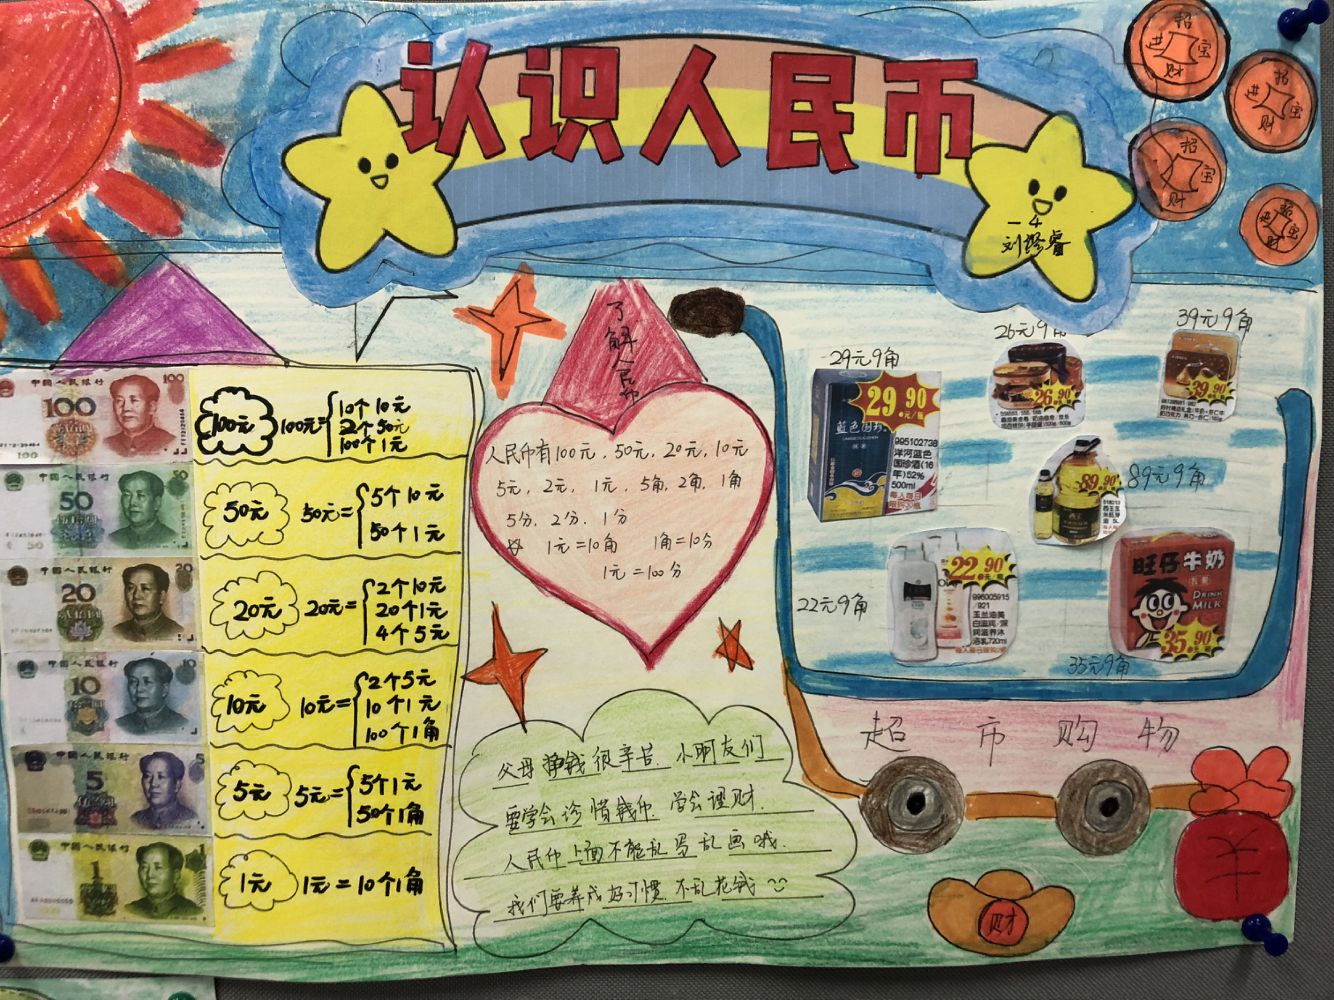 认识人民币
一4
招
进 宝
财
招
进 宝
财
招
进 宝
财
招
进 宝
财
了解人民币
中国人民银行 100
100
100
100元 100元=
10个10元
2个50元
100个1元
中国人民银行 50
50
50元 50元=
5个10元
50个1元
中国人民银行 20
20
20元 20元=
2个10元
20个1元
4个5元
中国人民银行 10
10
10元 10元=
2个5元
10个1元
100个1角
中国人民银行 5
5
5元 5元=
5个1元
50个1角
中国人民银行 1
1
1元 1元=10个1角
人民币有100元,50元,20元,10元
5元,2元,1元,5角,2角,1角
5分,2分,1分
1元=10角 1角=10分
1元=100分
父母挣钱很辛苦.小朋友们
要学会珍惜钱币.学会理财.
人民币上面不能乱写乱画哦.
我们要养成好习惯.不乱花钱
29元9角
29.90
元/瓶
995102738
洋河蓝色
国珍酒(16
年)52%
500ml
26元9角
26.90
39元9角
39.90
89.90
89元9角
22元9角
22.90
996005915
/921
玉兰油美
白滋润/深
润滋养沐
浴乳720ml
旺仔牛奶
DRINK
MILK
25.90
35元9角
超市购物
财